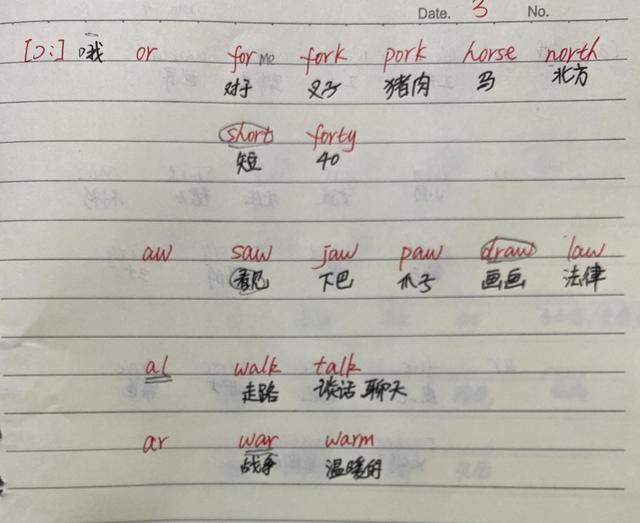 Date. 3 No.
[ɔ:] 哦 or for me fork pork horse north
对于 叉子 猪肉 马 北方
short forty
短 40
aw saw jaw paw draw law
看见 下巴 爪子 画画 法律
al walk talk
走路 谈话 聊天
ar war warm
战争 温暖的